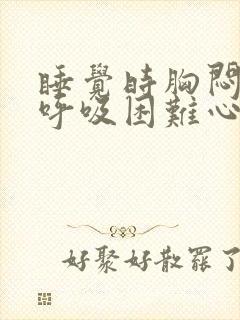 睡覺時胸悶
呼吸困難心
好聚好散罷了